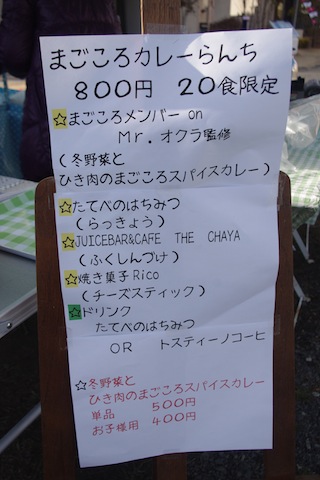 まごころカレーらんち
800円 20食限定
☆まごころメンバー on
Mr.オクラ監修
(冬野菜と
ひき肉のまごころスパイスカレー)
☆たてべのはちみつ
(らっきょう)
☆JUICEBAR&CAFE THE CHAYA
(ふくしんづけ)
☆焼き菓子Rico
(チーズスティック)
☆ドリンク
たてべのはちみつ
OR トスティーノコーヒ
☆冬野菜と
ひき肉のまごころスパイスカレー
単品 500円
お子様用 400円